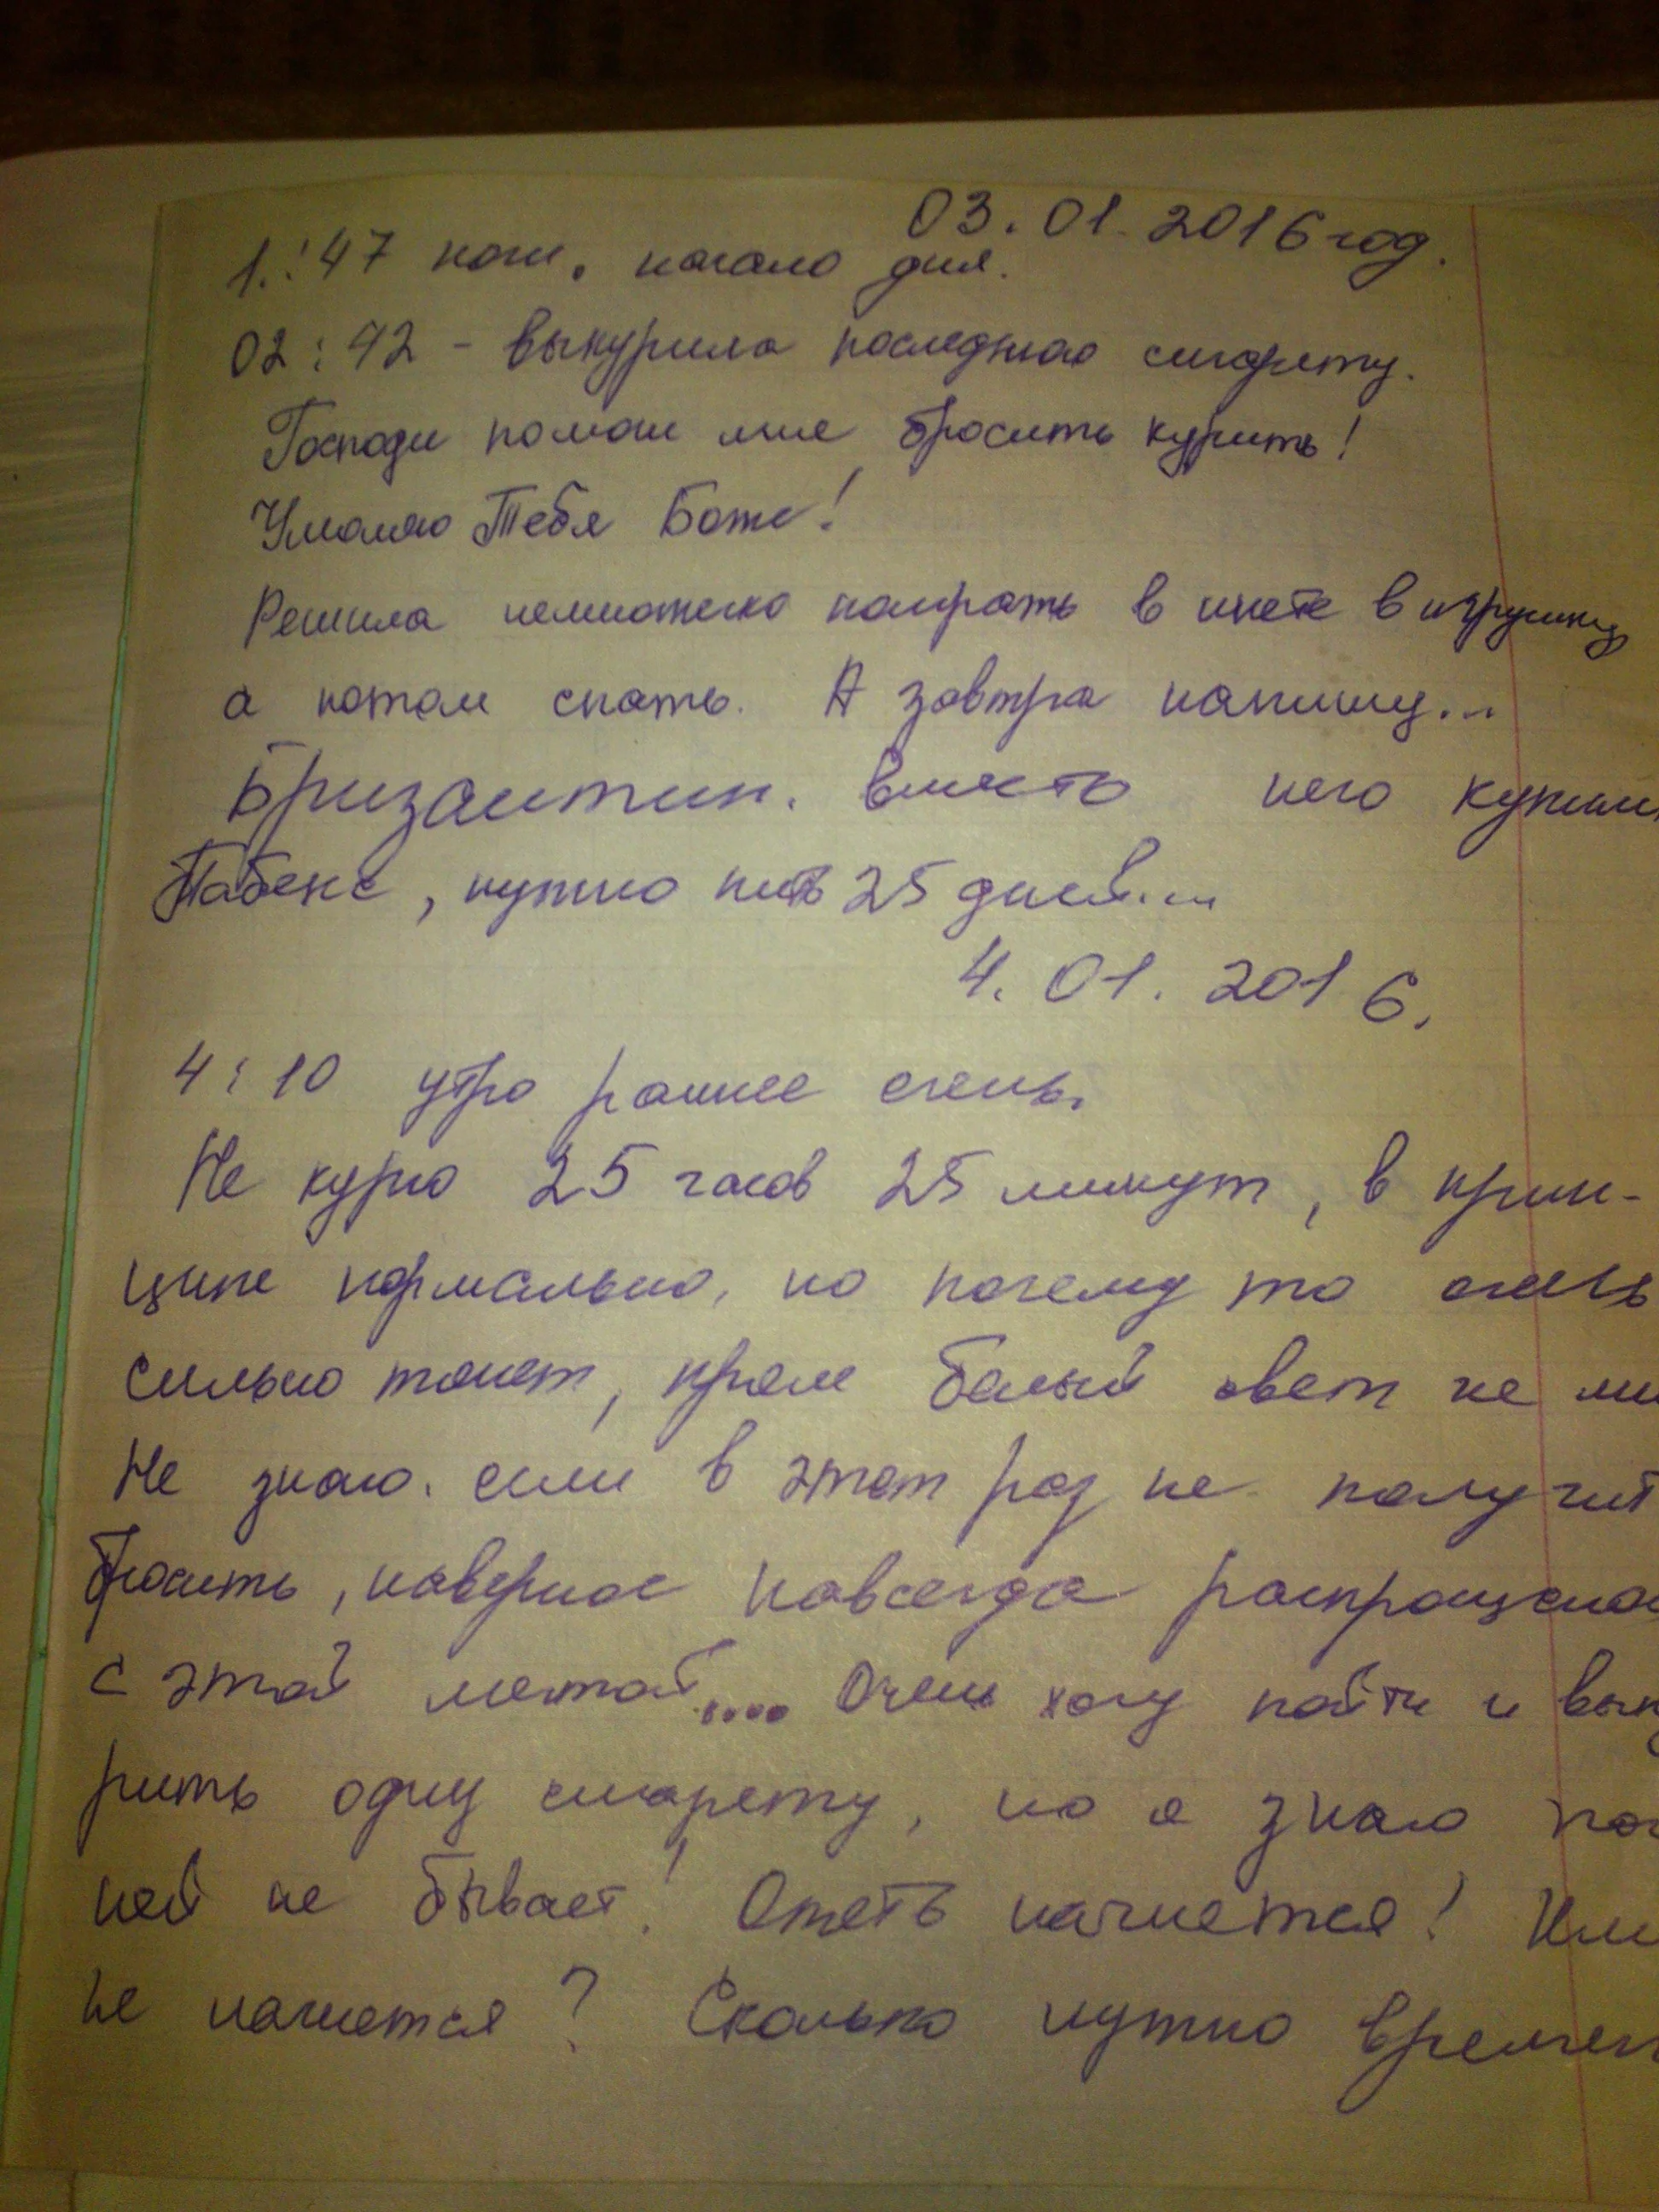 03.01.2016 год.
1.:47 ночи. начало дня.
02:42 - выкурила последнюю сигарету.
Господи помоги мне бросить курить!
Умоляю Тебя Боже!
Решила немножечко поиграть в инете в игрушку
а потом спать. А завтра напишу...
Бризантин. вместо него купил
Табекс, нужно пить 25 дней....
4.01.2016.
4:10 утро раннее очень.
Не курю 25 часов 25 минут, в прин-
ципе нормально, но почему то очень
сильно тянет, прям белый свет не ми
Не знаю. если в этот раз не получит
бросить, наверное навсегда распрощаюс
с этой мечтой.... Очень хочу пойти и вык
рить одну сигарету, но я знаю
ней не бывает! Опять начнется! Или
не начнется? Сколько нужно времен